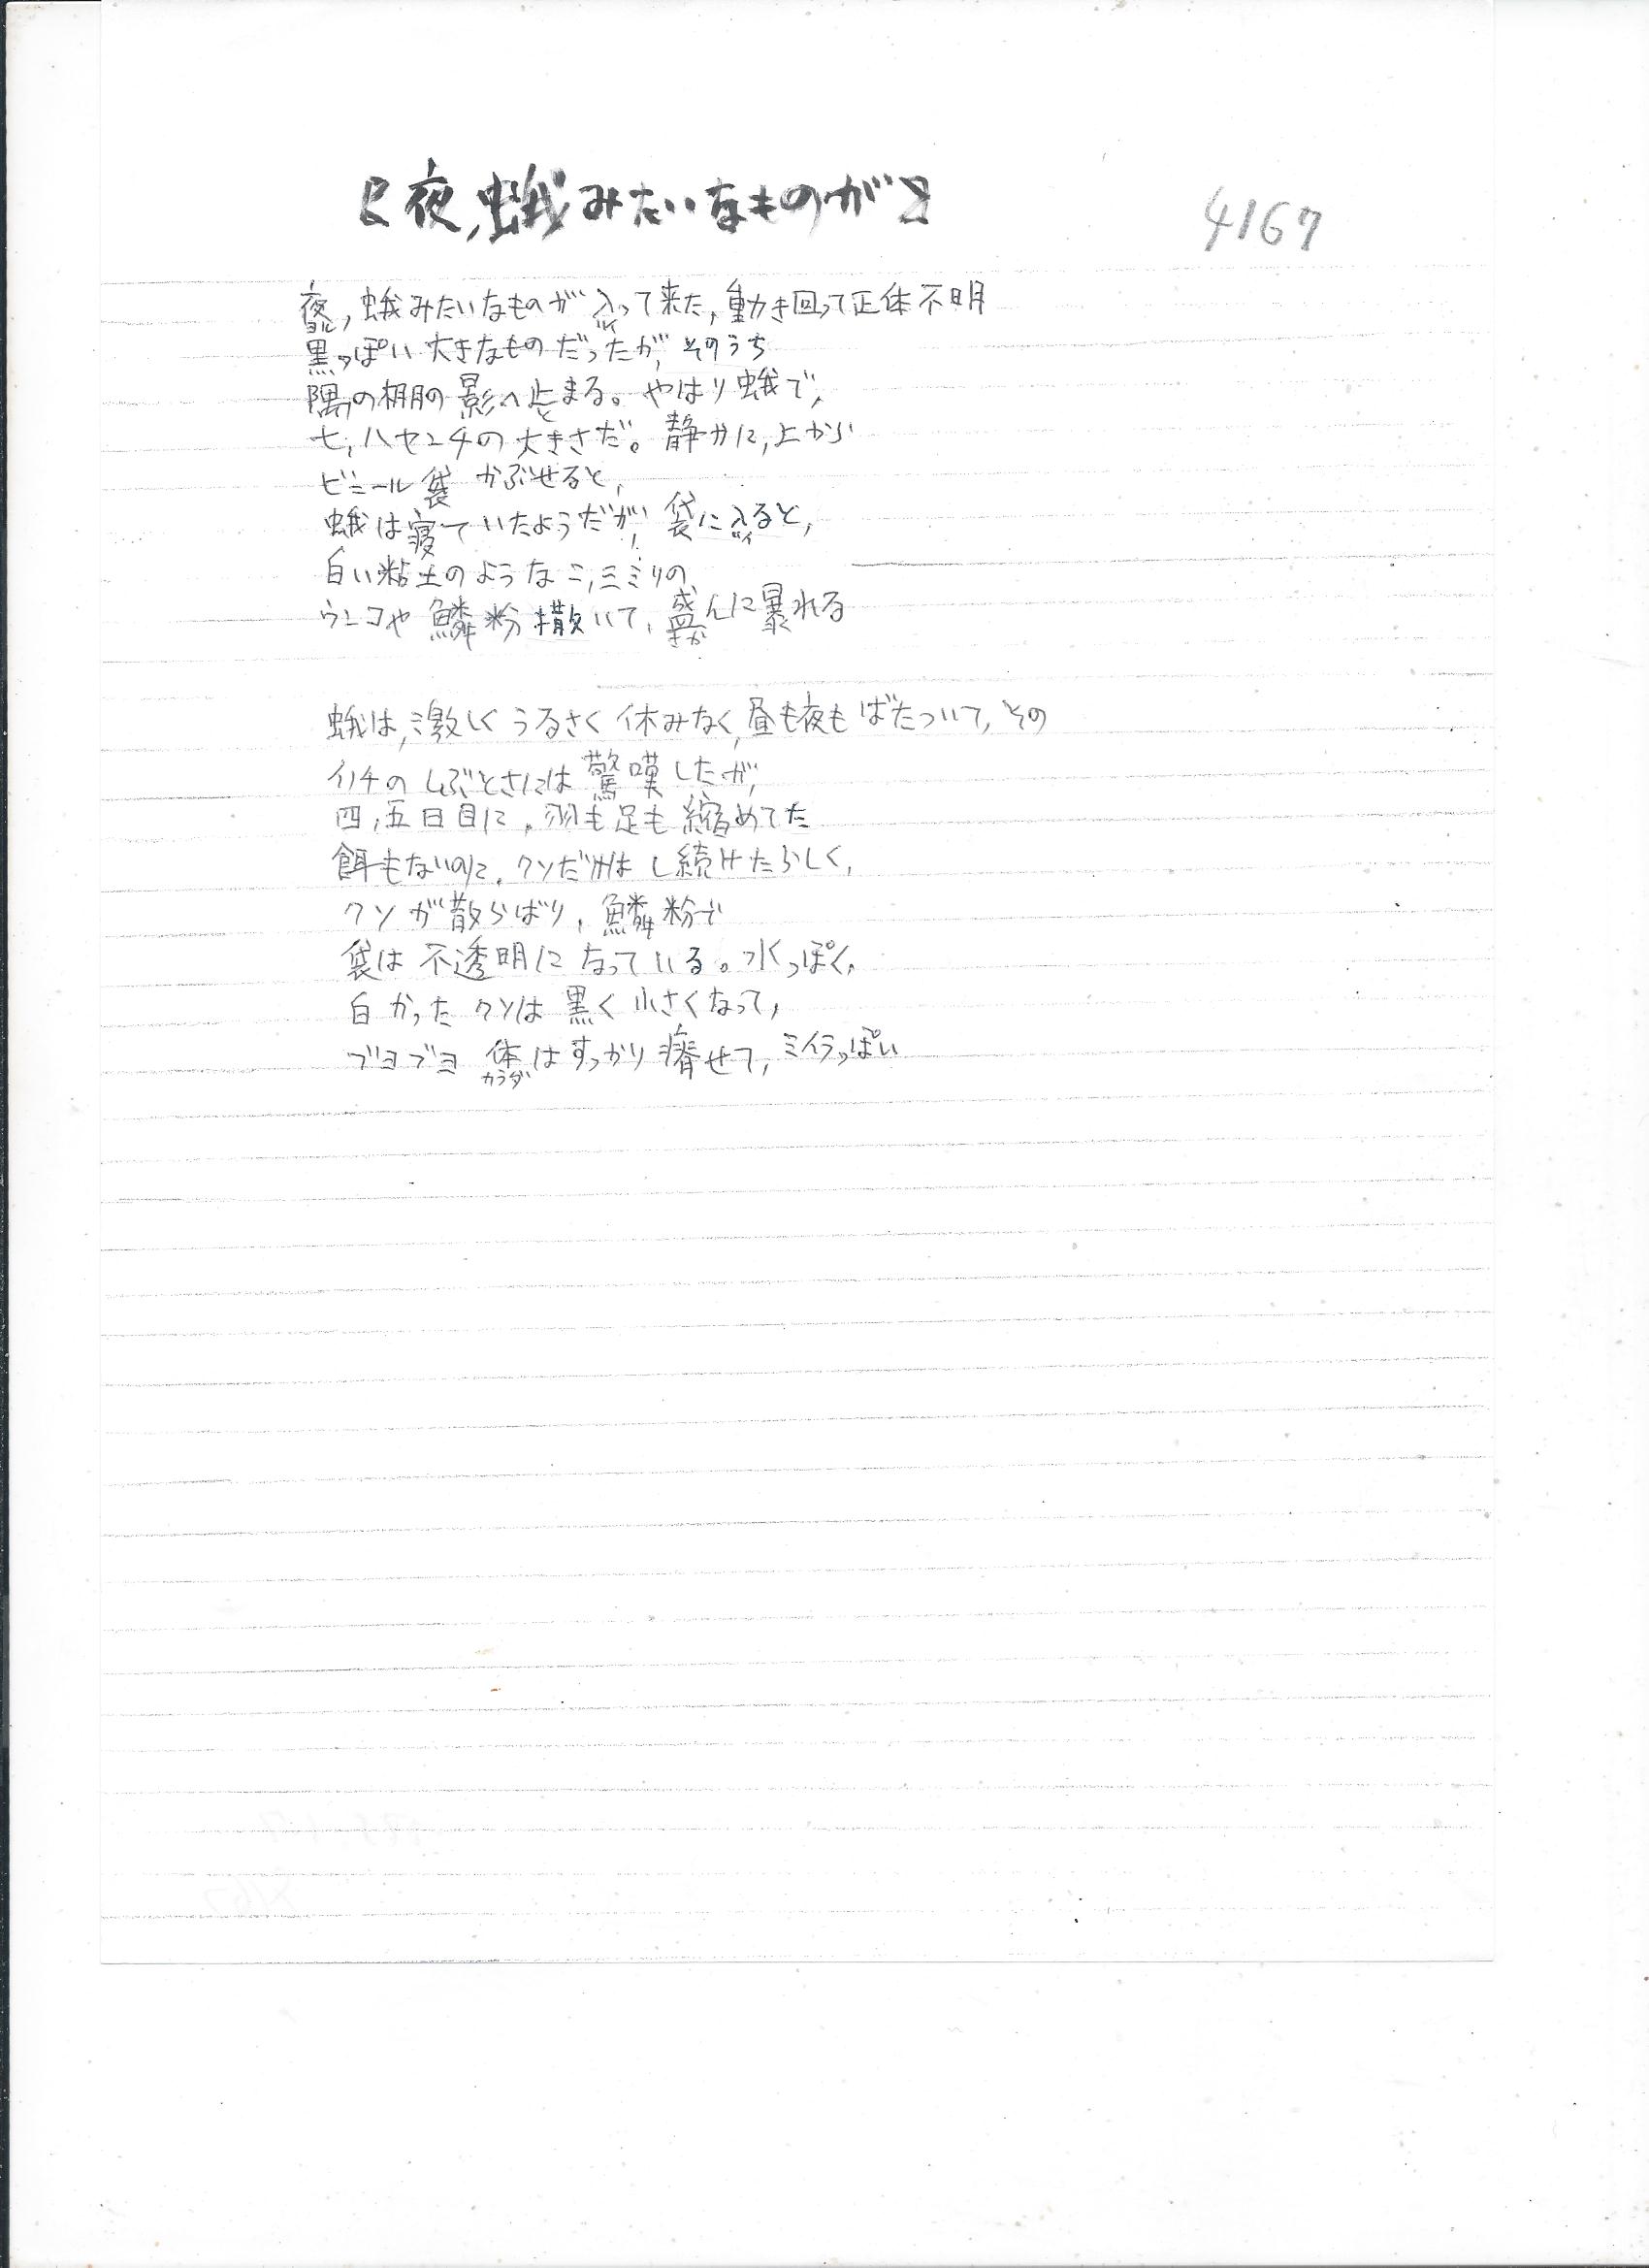 『夜,蛾みたいなものが』
4167
夜,蛾みたいなものが入って来た,動き回って正体不明
黒っぽい大きなものだったが,そのうち
隅の棚の影へ止まる。やはり蛾で,
七,八センチの大きさだ。静かに,上から
ビニール袋かぶせると,
蛾は寝ていたようだが,袋に入ると,
白い粘土のような二,三ミリの
ウンコや鱗粉撒いて,盛んに暴れる
蛾は,激しくうるさく休みなく,昼も夜もばたついて,その
イノチのしぶとさには驚嘆したが,
四,五日目に,羽も足も縮めてた
餌もないのに,クソだけはし続けたらしく,
クソが散らばり,鱗粉で
袋は不透明になっている。水っぽく,
白かったクソは黒く小さくなって,
ブヨブヨ体はすっかり瘠せて,ミイラっぽい